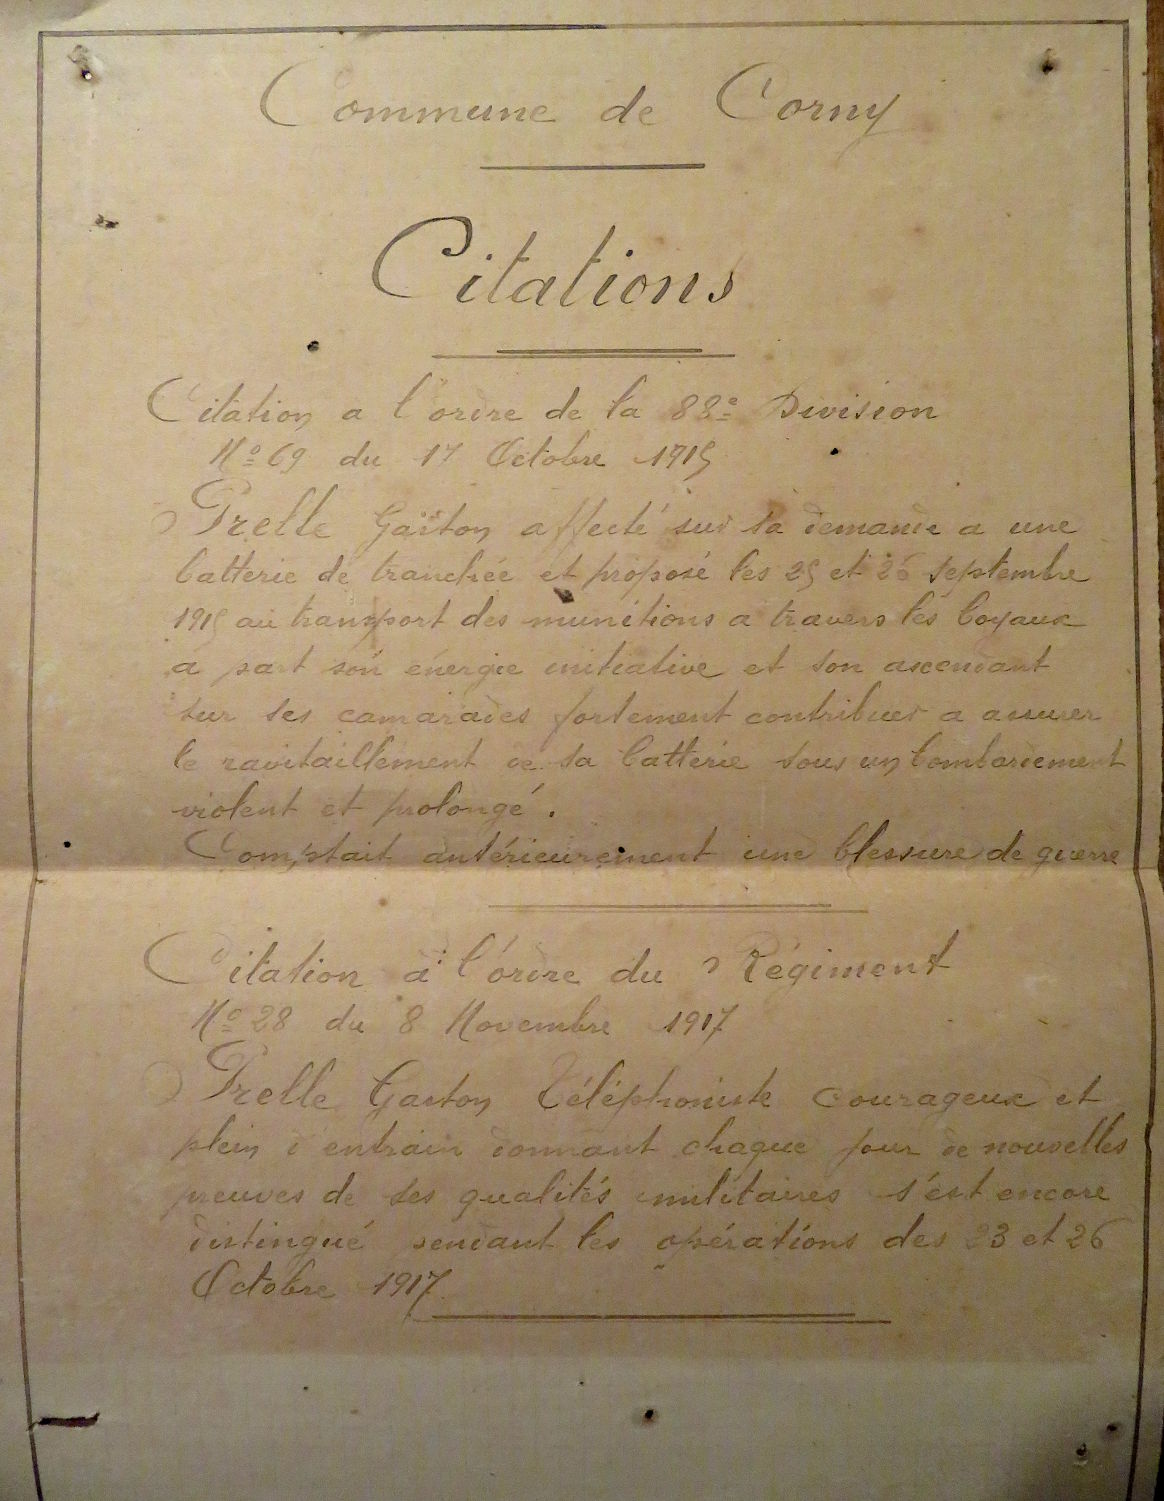 Commune de Corny
Citations
Citation a l'ordre de la 88e Division
No 69 du 17 Octobre 1915
Prelle Gaston affecté sur sa demande a une
batterie de tranchée et proposé les 25 et 26 septembre
1915 au transport des munitions a travers les boyaux
a part son énergie initiative et son ascendant
sur ses camarades fortement contribuer a assurer
le ravitaillement de sa batterie sous un bombardement
violent et prolongé.
Comptait antérieurement une blessure de guerre
Citation à l'ordre du Régiment
No 28 du 8 Novembre 1917
Prelle Gaston Téléphoniste courageux et
plein d'entrain donnant chaque jour de nouvelles
preuves de ses qualités militaires s'est encore
distingué pendant les opérations des 23 et 26
Octobre 1917